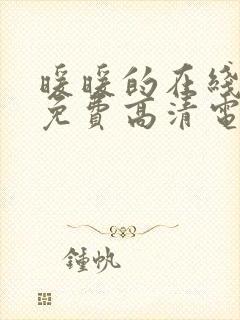 暖暖的在线
免费高清電
鍾帆